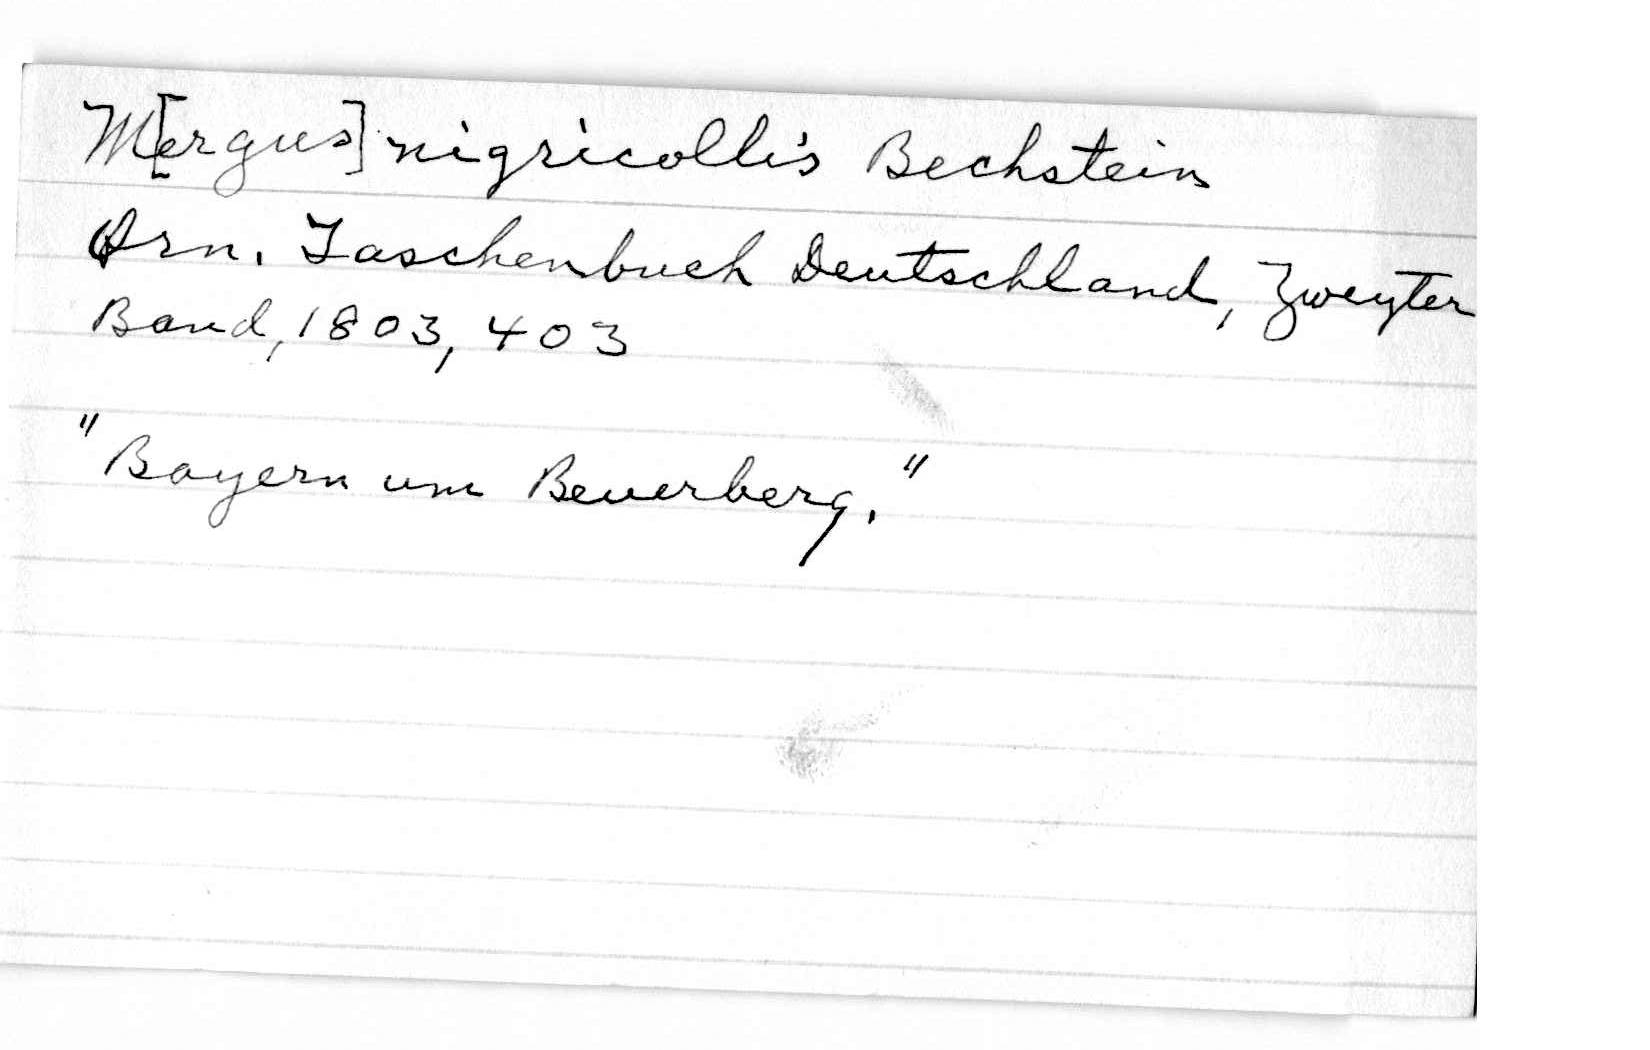 M[ergus] nigricollis Bechstein
Orn. Taschenbuch Deutschland, Zweyter
Band, 1803, 403
"Bayern um Beuerberg."